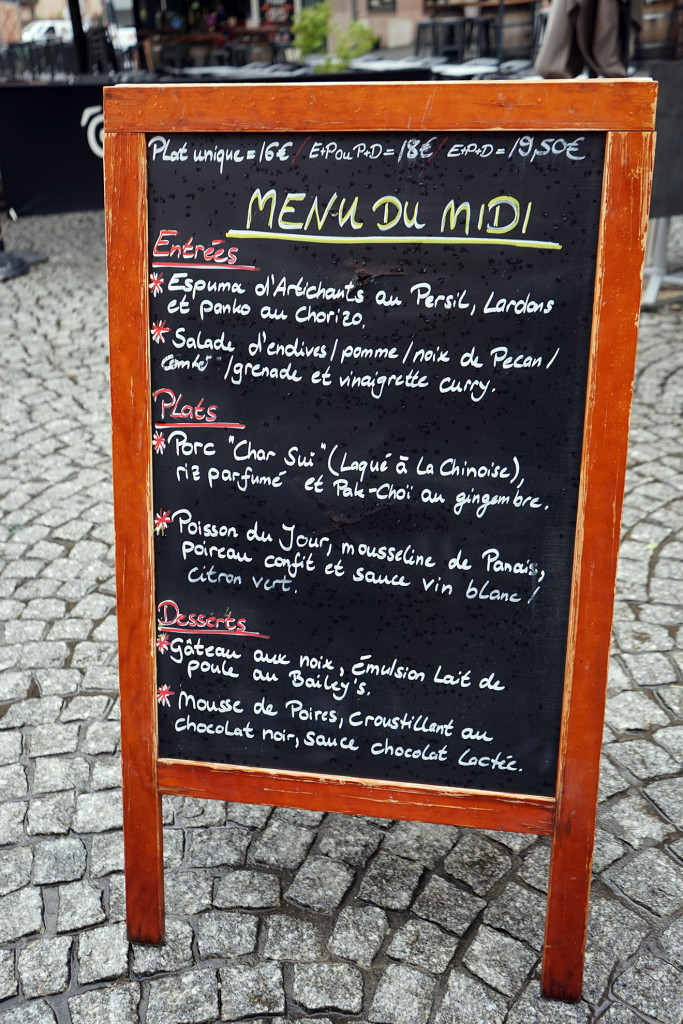 Plat unique = 16€ / E+P ou P+D = 18€ / E+P+D = 19,50€
MENU DU MIDI
Entrées
* Espuma d'Artichauts au Persil, Lardons
et panko au chorizo.
* Salade d'endives/pomme/noix de Pecan/
Comté /grenade et vinaigrette curry.
Plats
* Porc "Char Sui" (Laqué à la Chinoise),
riz parfumé et Pak-Choï au gingembre.
* Poisson du Jour, mousseline de Panais,
poireau confit et sauce vin blanc/
citron vert.
Desserts
* Gâteau aux noix, émulsion Lait de
poule au Bailey's.
* Mousse de Poires, croustillant au
chocolat noir, sauce chocolat lactée.